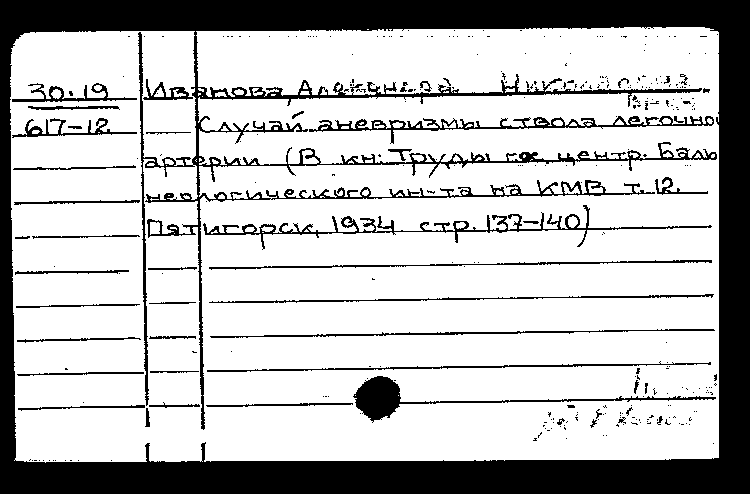 30.19 Иванова, Александра Николаевна
617-12 Случай аневризмы ствола легочной
артерии (В кн: Труды гос. центр. Баль
неологического ин-та на КМВ т. 12.
Пятигорск, 1934 стр. 137-140)